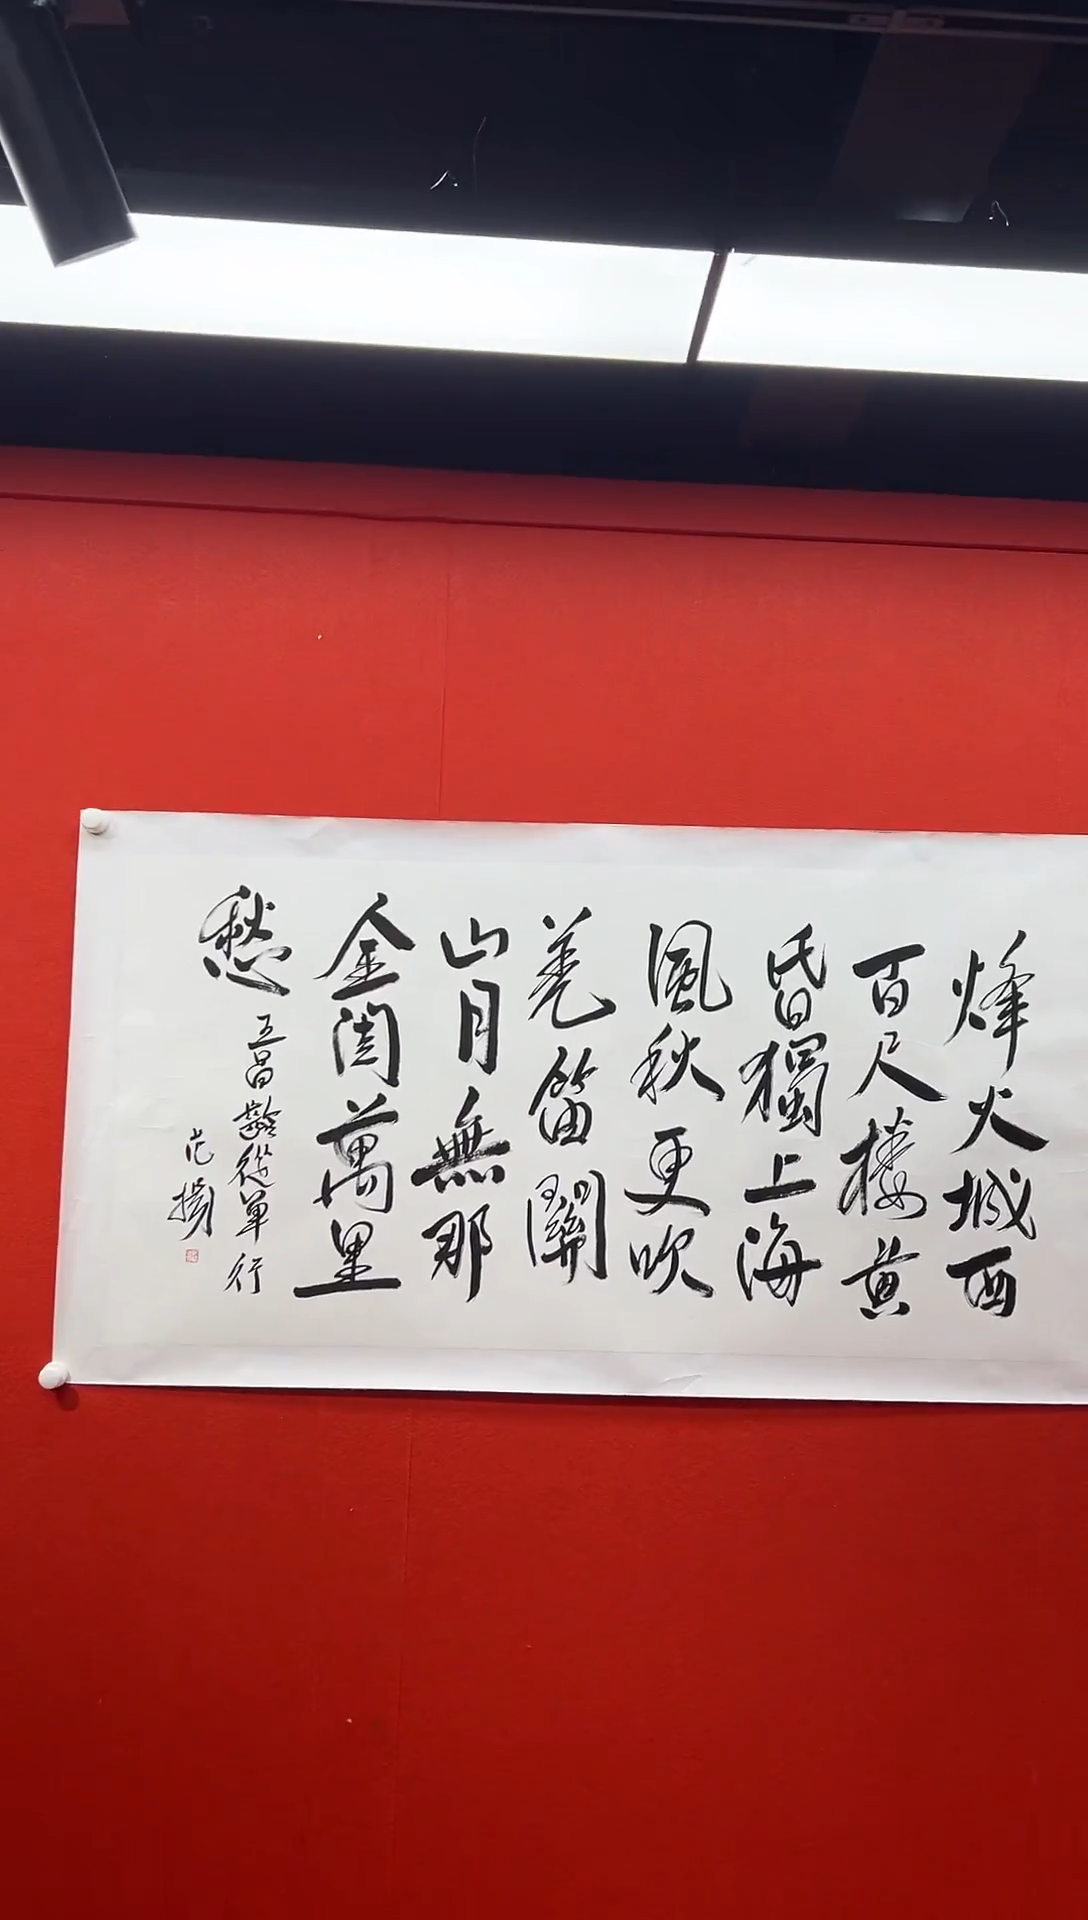 烽火城西
百尺楼黄
昏獨上海
風秋更吹
羌笛關
山月無那
金閨萬里
愁
王昌齡從軍行
范揚